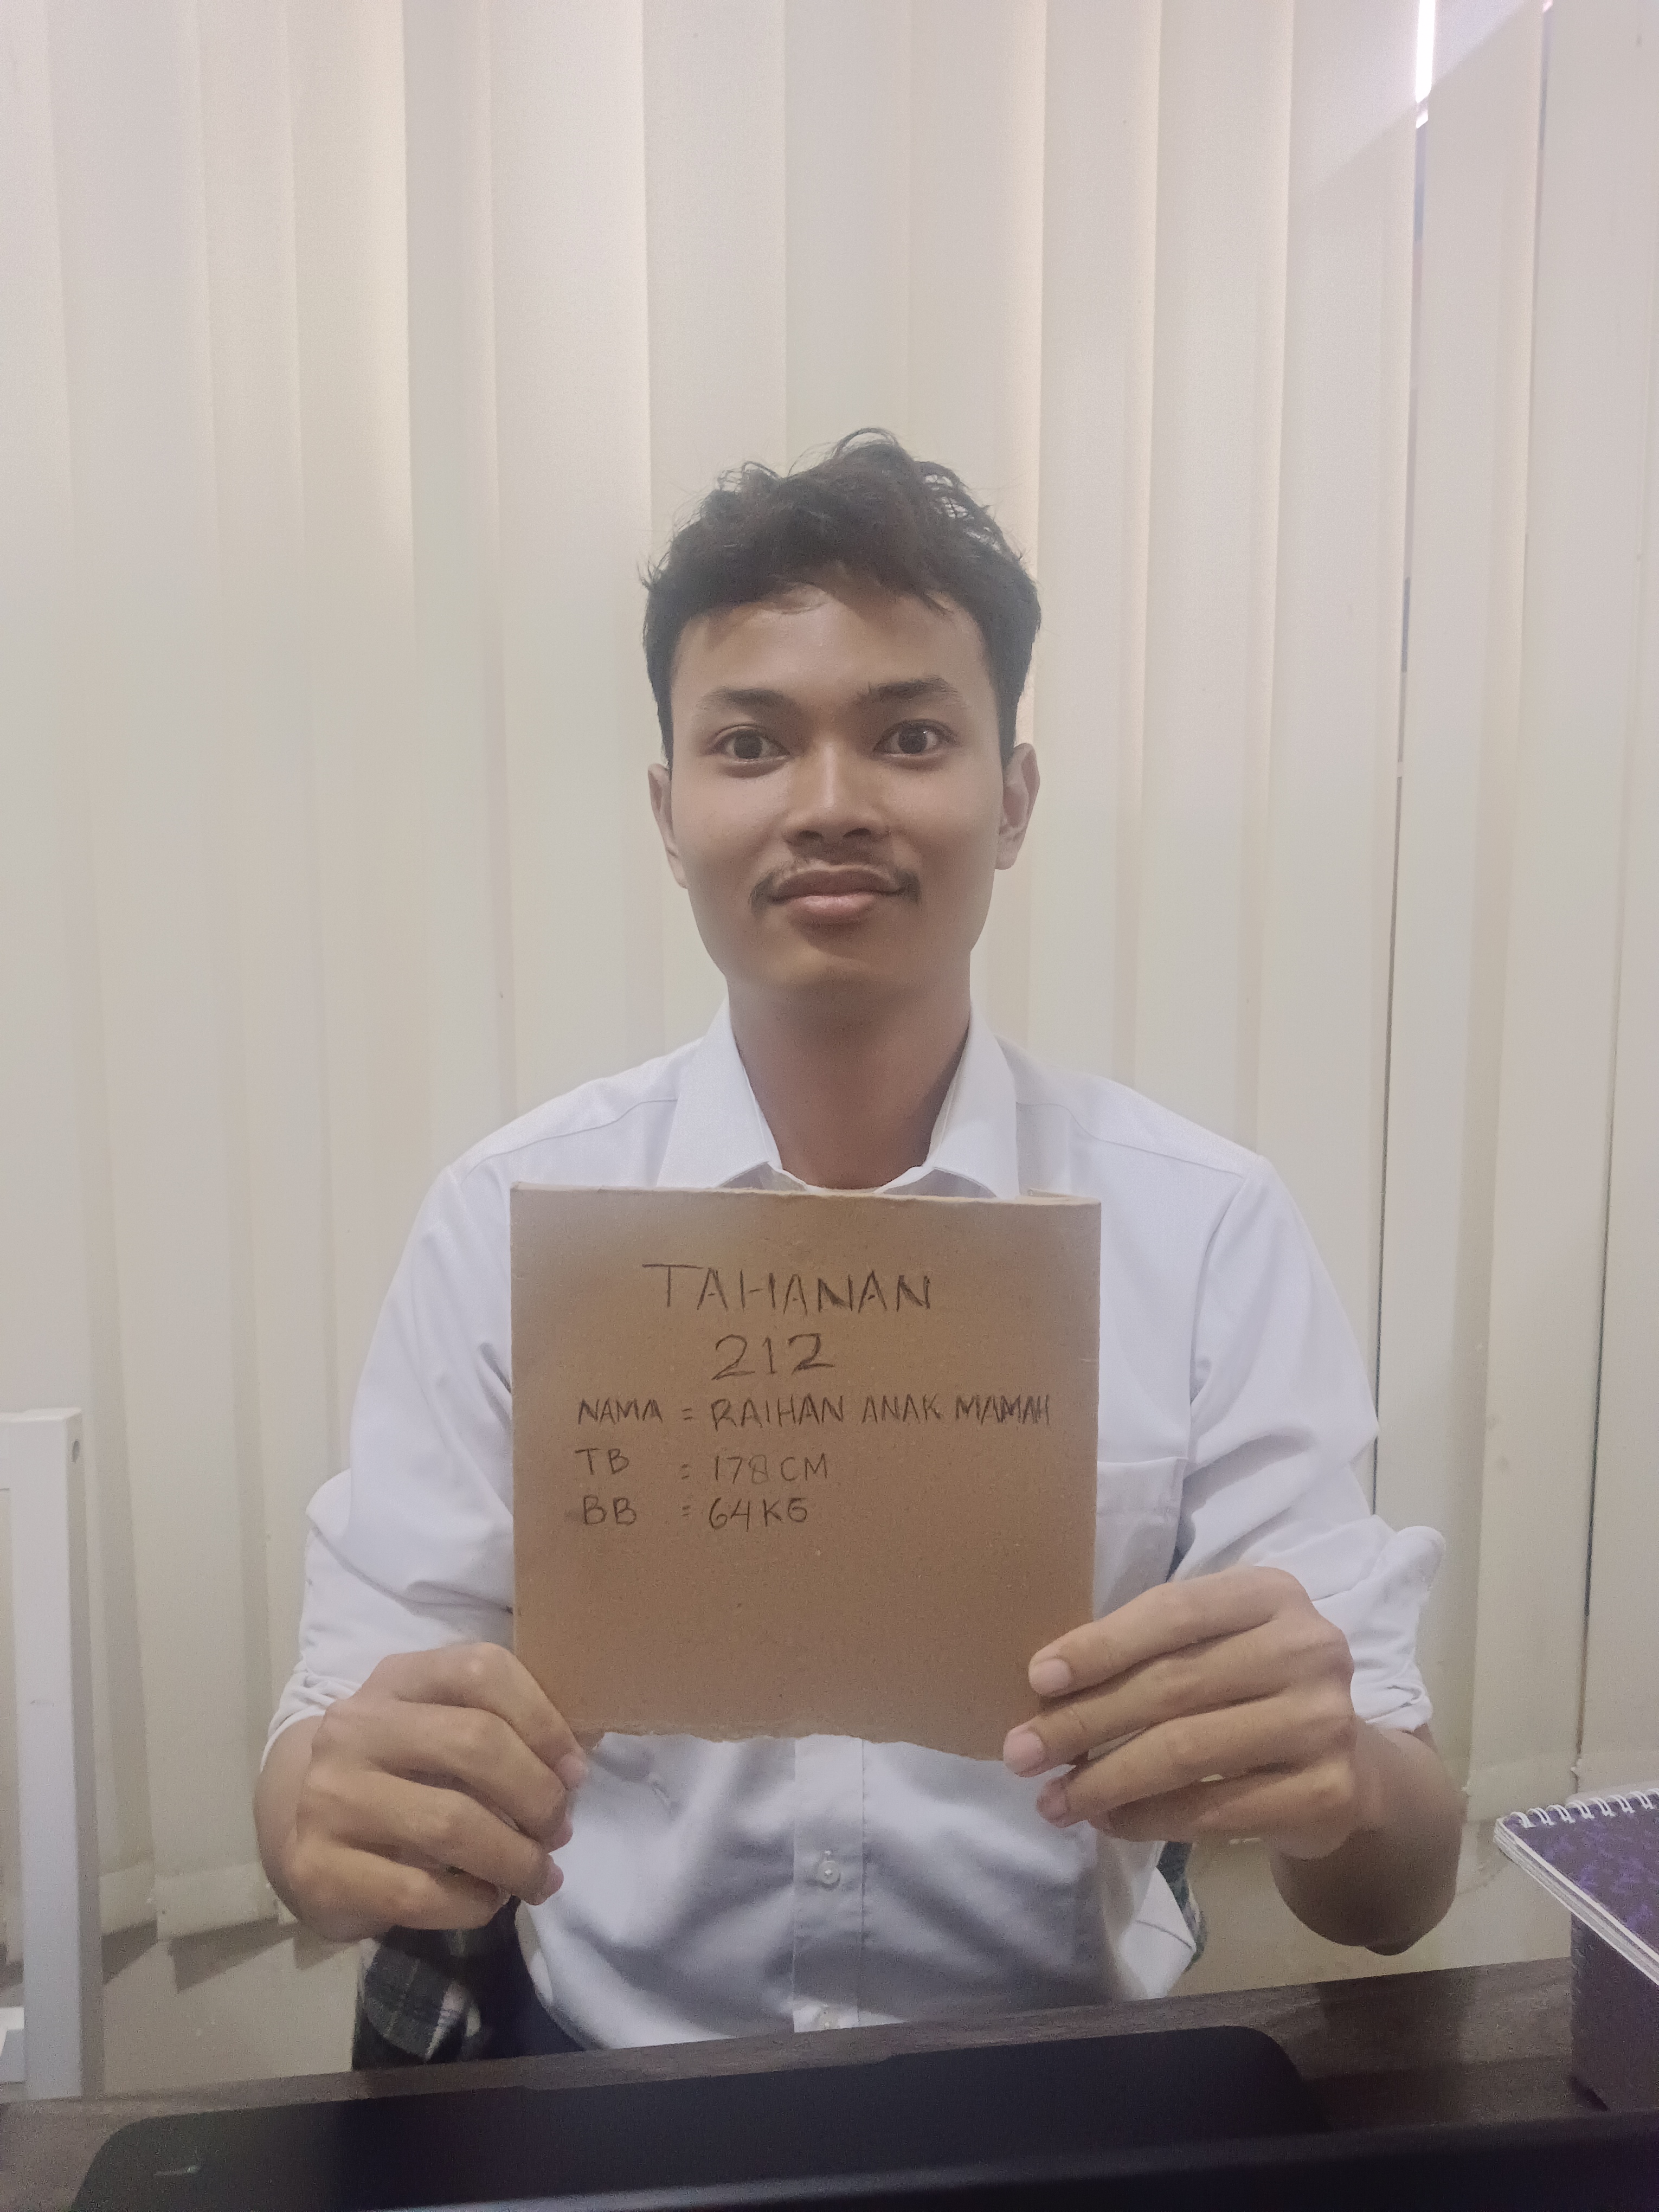 TAHANAN
212
NAMA = RAIHAN ANAK MAMAH
TB = 178 CM
BB = 64 KG